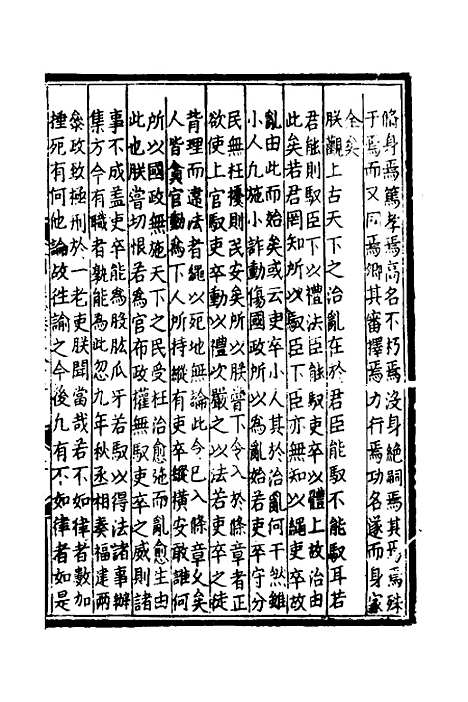 修身焉篤孝焉高名不朽焉没身絶嗣焉其焉焉殊
于焉而又同焉卿其審擇焉功行焉功名遂而身家
全矣
朕觀上古天下之治亂在於君臣能馭不能馭耳若
君能則馭臣下以禮法臣能馭吏卒以體上故治由
此矣若君罔知所以馭臣下臣亦無知以繩吏卒故
亂由此而始矣或云吏卒小人其於治亂何干然雖
小人九施小詐動傷國政所以為亂始若吏卒守分
民無枉擾則民安矣所以朕嘗下令入於條章者正
欲使上官馭吏卒動以禮次嚴之以法若吏卒之徒
背理而違法者繩以死地無論此令已入條章久矣
人皆貪官動為下人所持縱有吏卒縱横安敢誰何
所以國政無施天下之民受枉治愈施而亂愈生由
此也朕嘗切恨若為官布政權無馭吏卒之威則諸
事不成盖吏卒能為股肱瓜牙若馭以得法諸事辦
集方今有職者孰能為此忽九年秋丞相奏福建兩
叅政致極刑於一老吏朕聞當哉若不如律者數加
捶死有何他論故徃諭之今後九有不如律者如是